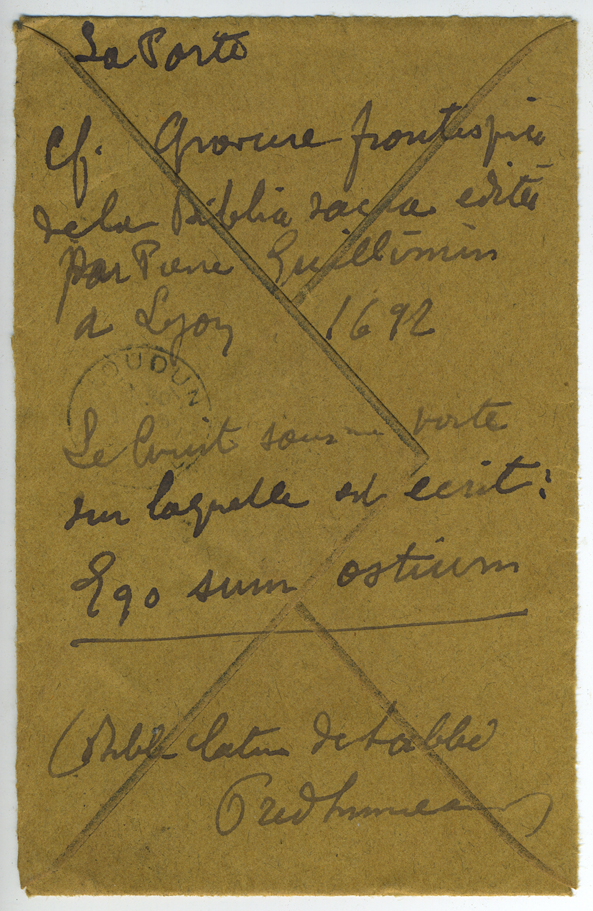 La Porte
Cf. Gravure frontispice
de la Biblia sacra editée
par Pierre Guillimin
a Lyon 1692
LOUDUN
Le Christ sous une porte
sur laquelle est ecrit :
Ego sum ostium
(Bible latine de l'abbé